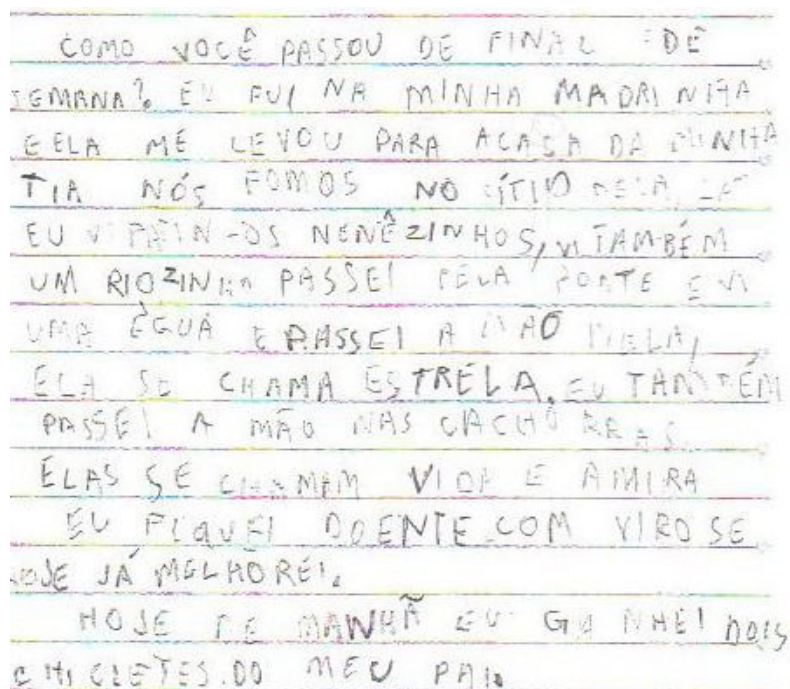 COMO VOCÊ PASSOU DE FINAL DE
SEMANA? EU FUI NA MINHA MADRINHA
E ELA ME LEVOU PARA ACASA DA MINHA
TIA NÓS FOMOS NO SÍTIO DELA, LÁ
EU VI OS NENÊZINHOS, VI TAMBÉM
UM RIOZINHO PASSEI PELA PONTE E VI
UMA ÉGUA E PASSEI A MÃO NELA,
ELA SE CHAMA ESTRELA. EU TAMBÉM
PASSEI A MÃO NAS CACHORRAS.
ELAS SE CHAMAM VIDA E AMIRA
EU FIQUEI DOENTE COM VIROSE
HOJE JÁ MELHOREI.
HOJE DE MANHÃ EU GANHEI DOIS
CHICLETES DO MEU PAI.